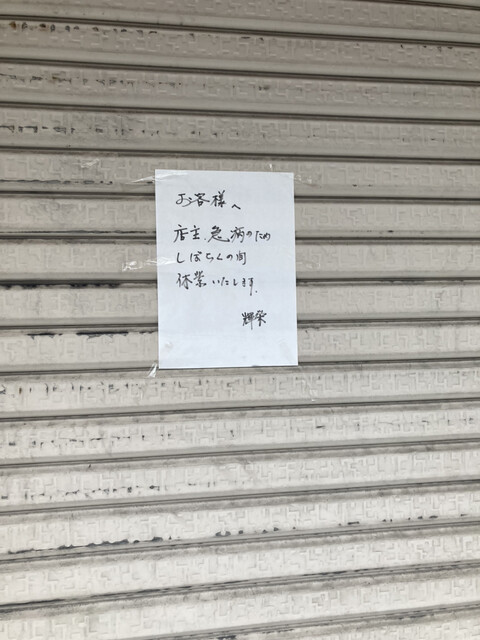 お客様へ
店主、急病のため
しばらくの間
休業いたします。
輝栄